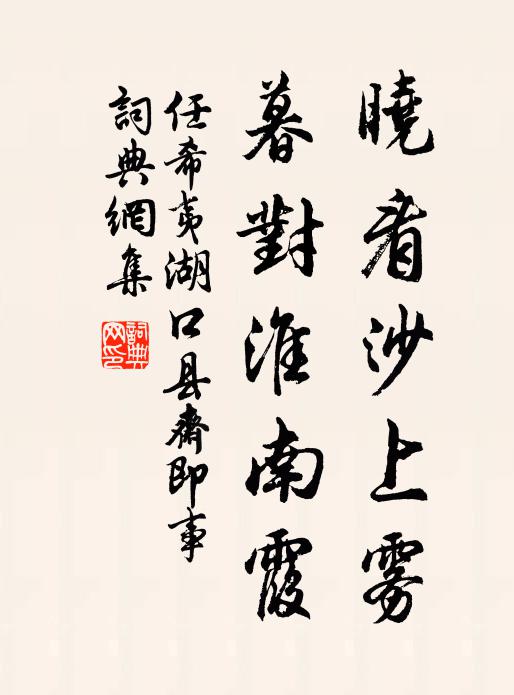 曉看沙上雾
暮對淮南霞
任希夷湖口县齋即事
詞典網集
詞典网印